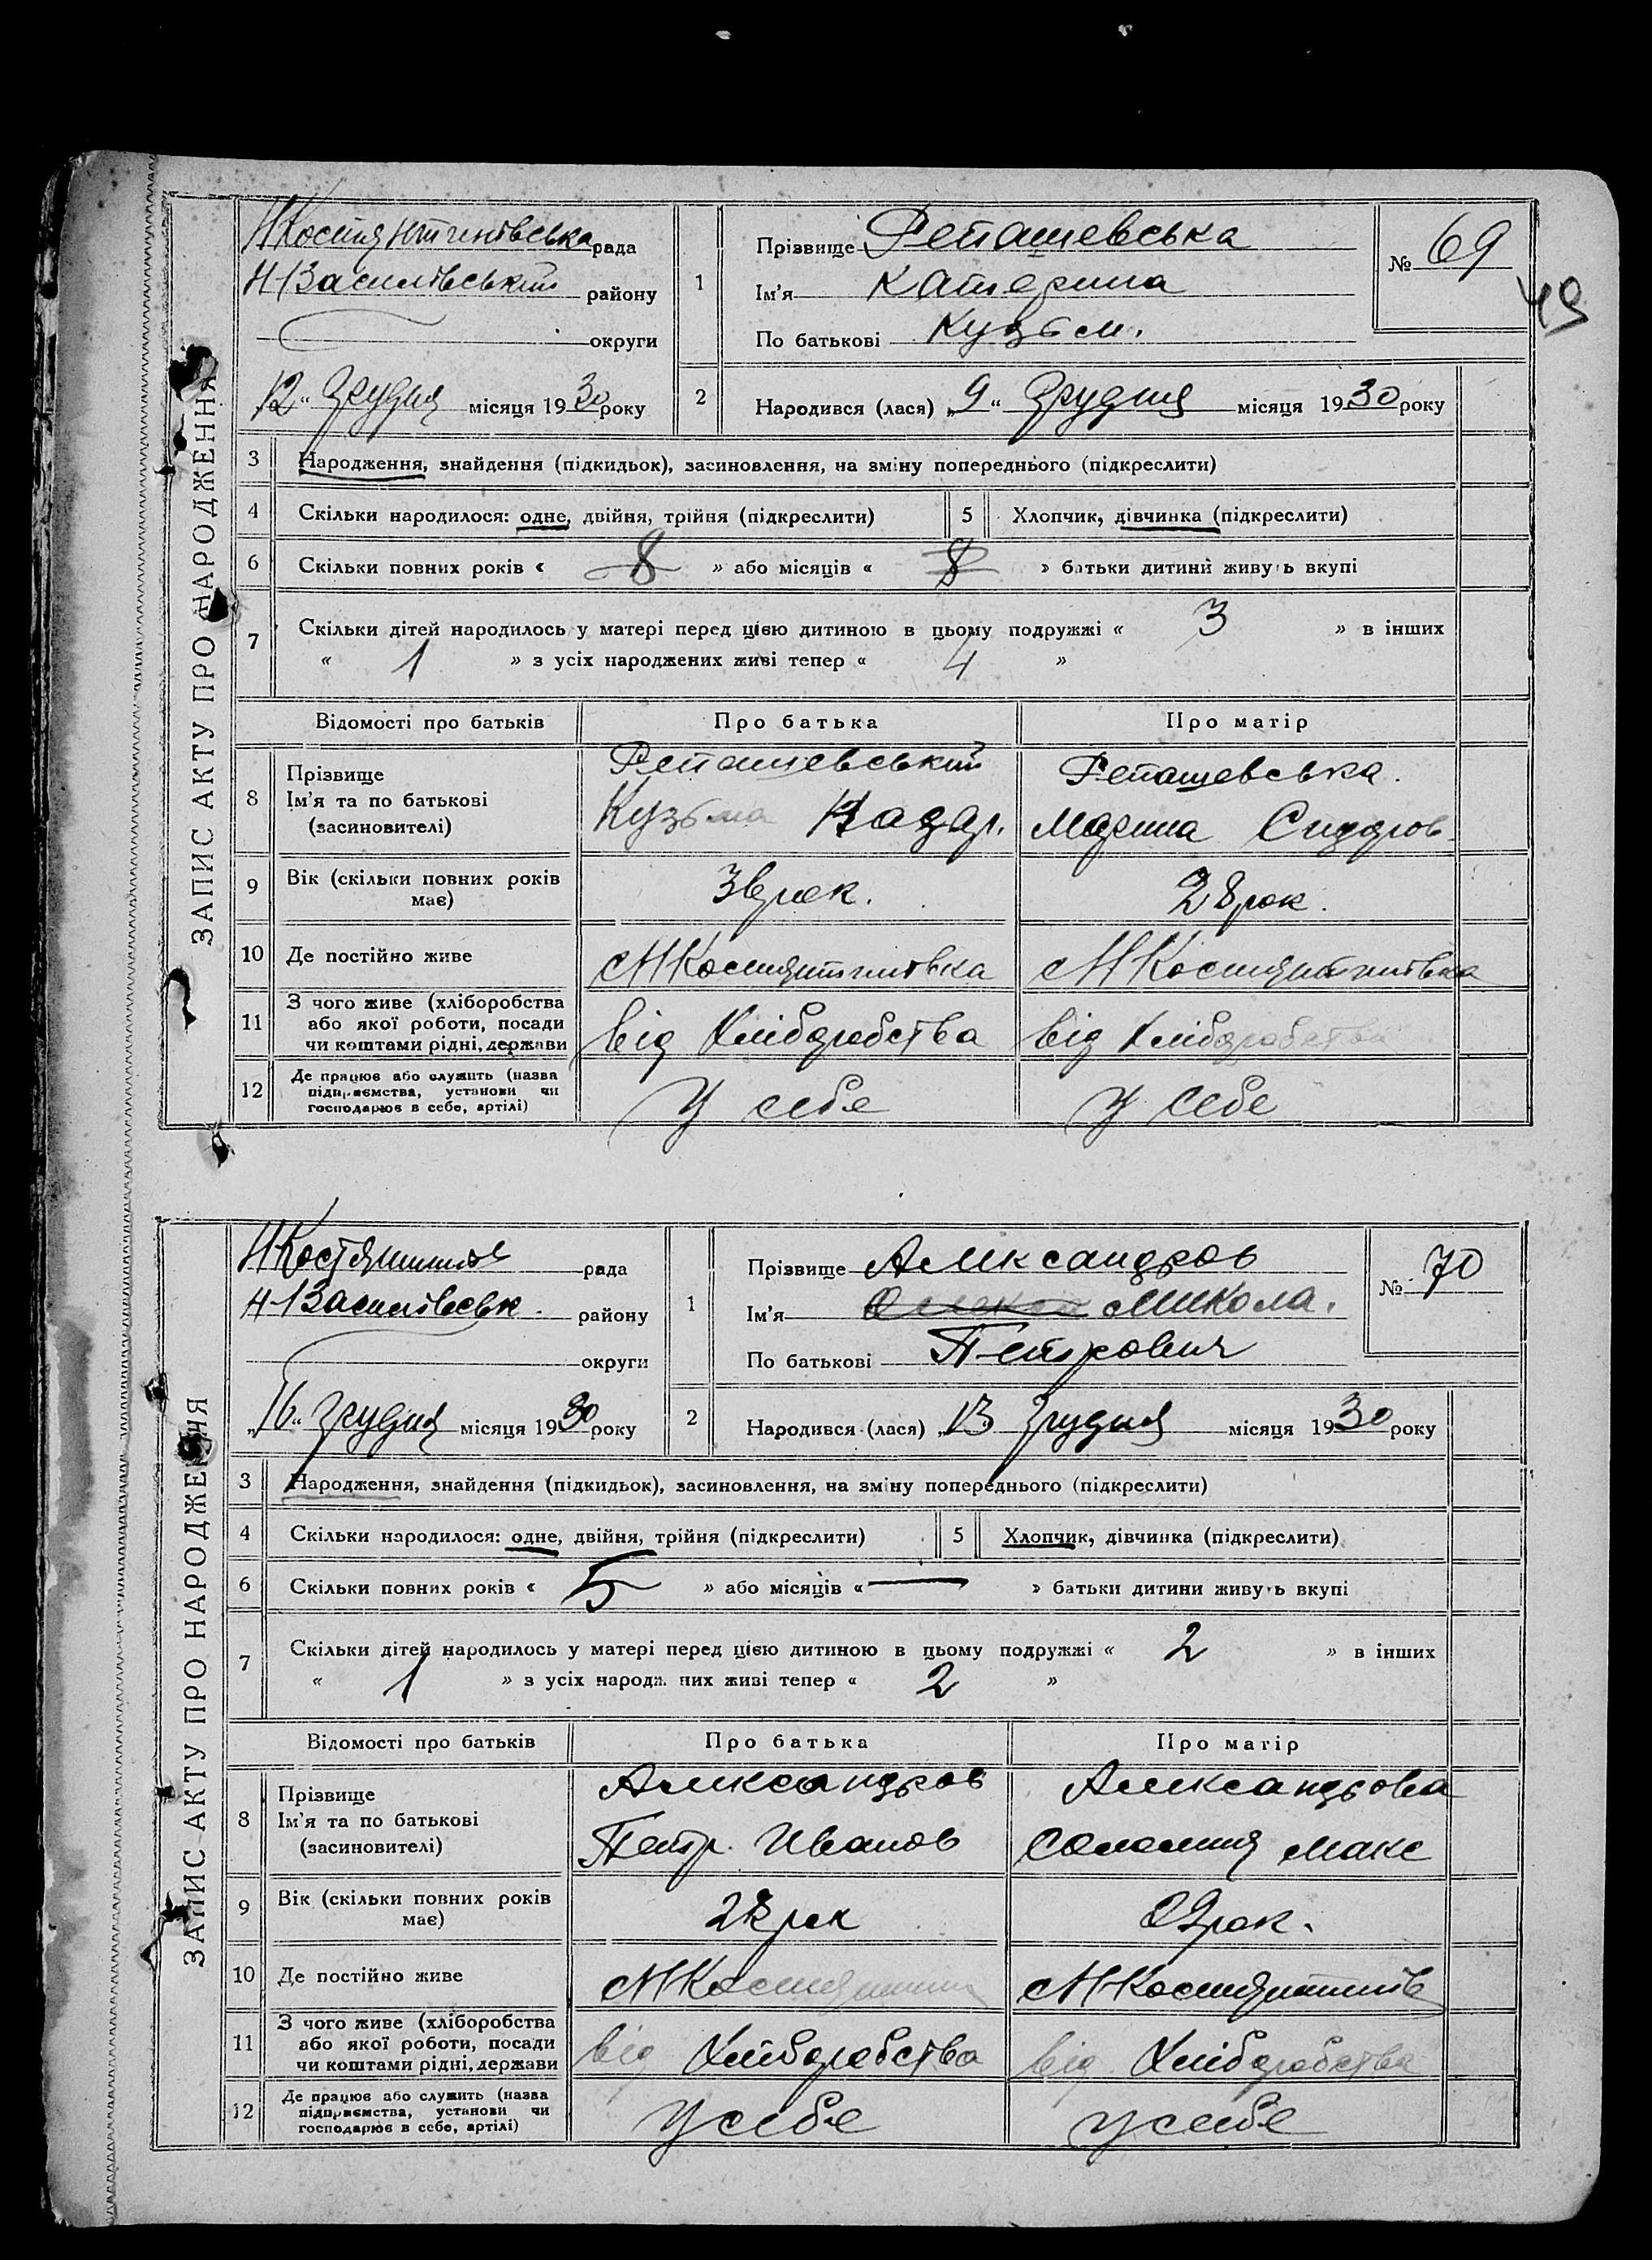 ЗАПИС АКТУ ПРО НАРОДЖЕННЯ
НКостянтинівська рада
Н-Василівський району
округи
12 " грудня місяця 1930 року
1
Прізвище Репашевська
Ім'я Катерина
По батькові Кузьм.
№ 69
49
2
Народився (лася) „ 9 “ грудня місяця 1930 року
3 Народження, знайдення (підкидьок), засиновлення, на зміну попереднього (підкреслити)
4 Скільки народилося: одне, двійня, трійня (підкреслити) 5 Хлопчик, дівчинка (підкреслити)
6 Скільки повних років « 8 » або місяців « 8 » батьки дитини живуть вкупі
7 Скільки дітей народилось у матері перед цією дитиною в цьому подружжі « 3 » в інших
« 1 » з усіх народжених живі тепер « 4 »
Відомості про батьків Про батька Про матір
8 Прізвище Репашевський Репашевська.
Ім'я та по батькові Кузьма Назар. Марина Сидоров
(засиновителі)
9 Вік (скільки повних років має) рок. 28 рок.
10 Де постійно живе НКостянтинівка НКостянтинівка
11 З чого живе (хліборобства
або якої роботи, посади
чи коштами рідні, держави від Хліборобства від Хліборобства
12 Де працює або служить (назва
підприємства, установи чи
господарює в себе, артілі) У себе У себе
ЗАПИС АКТУ ПРО НАРОДЖЕННЯ
НКостянтинів рада
Н-Василівськ. району
округи
„ 16 “ грудня місяця 1930 року
1
Прізвище Александров
Ім'я Микола.
По батькові Петрович
№ 70
2
Народився (лася) „ 13 грудня місяця 1930 року
3 Народження, знайдення (підкидьок), засиновлення, на зміну попереднього (підкреслити)
4 Скільки народилося: одне, двійня, трійня (підкреслити) 5 Хлопчик, дівчинка (підкреслити)
6 Скільки повних років « 5 » або місяців « — » батьки дитини живуть вкупі
7 Скільки дітей народилось у матері перед цією дитиною в цьому подружжі « 2 » в інших
« 1 » з усіх народж. них живі тепер « 2 »
Відомості про батьків Про батька Про матір
8 Прізвище Александров Александрова
Ім'я та по батькові Петр. Иванов Соломия Макс
(засиновителі)
9 Вік (скільки повних років має) рок рок.
10 Де постійно живе НКостянтин НКостянтинів
11 З чого живе (хліборобства
або якої роботи, посади
чи коштами рідні, держави від Хліборобства від Хліборобства
12 Де працює або служить (назва
підприємства, установи чи
господарює в себе, артілі) У себе у себе